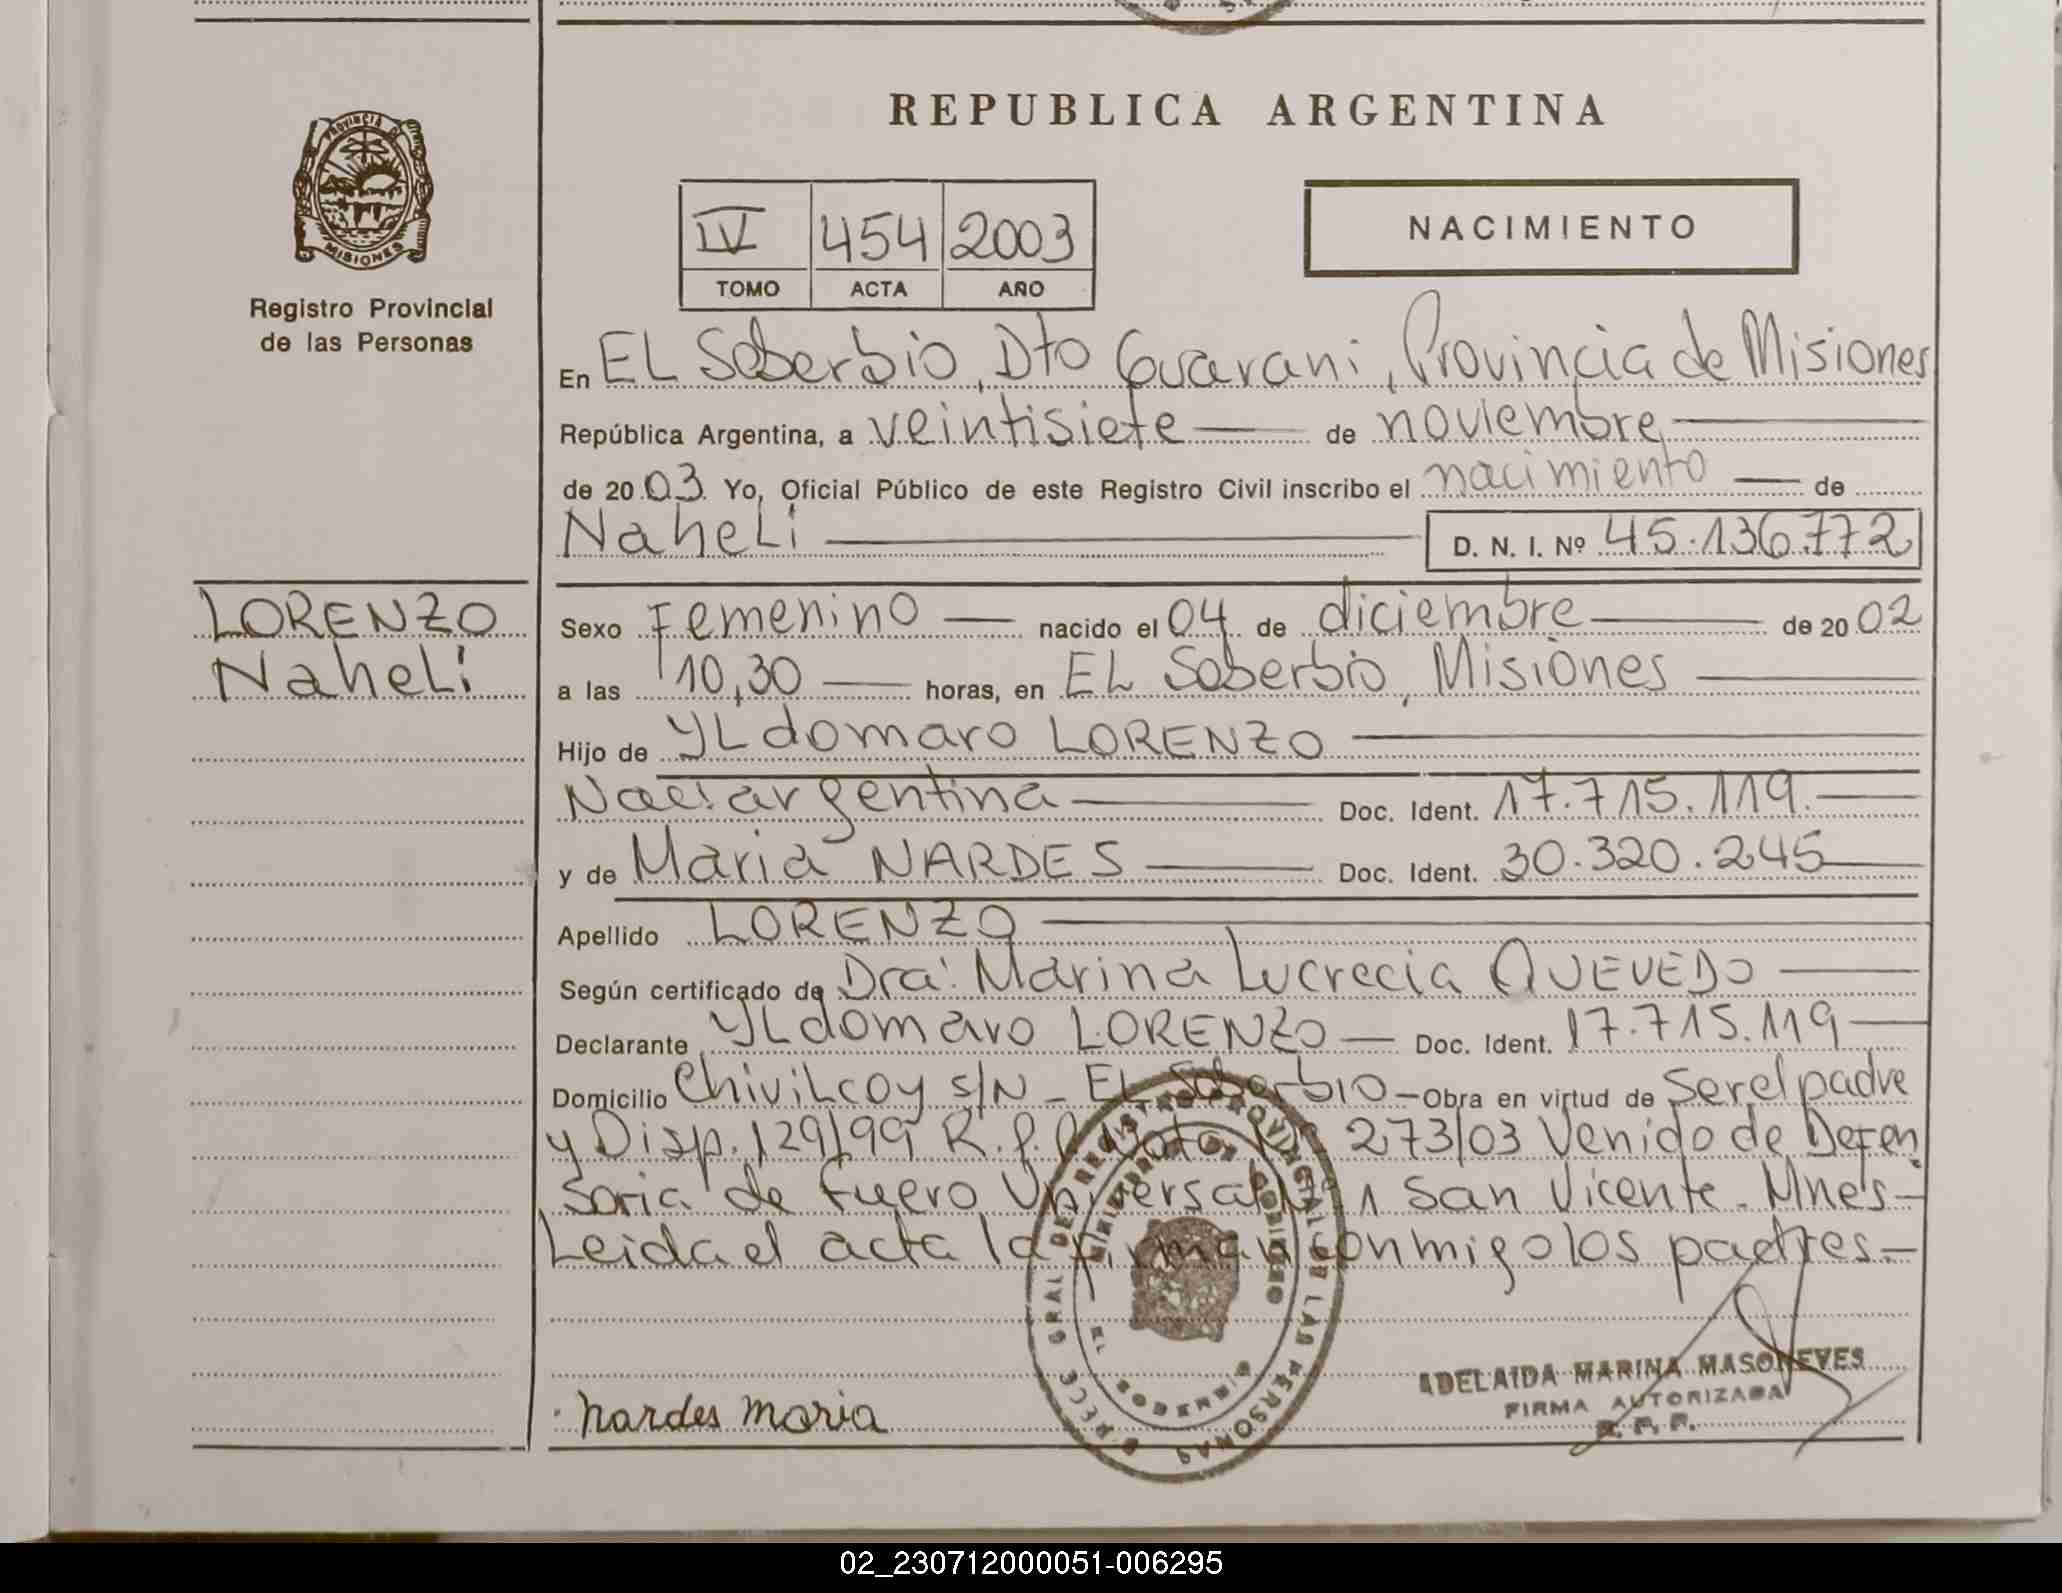 REPUBLICA ARGENTINA
PROVINCIA D
MISIONES
Registro Provincial
de las Personas
IV 454 2003
TOMO ACTA AÑO
NACIMIENTO
En EL Soberbio, Dto Guarani, Provincia de Misiones
República Argentina, a veintisiete de noviembre
de 2003. Yo, Oficial Público de este Registro Civil inscribo el nacimiento de
Naheli D. N. I. Nº 45.136.772
LORENZO
Naheli
Sexo Femenino nacido el 04 de diciembre de 2002
a las 10,30 horas, en EL Soberbio, Misiones
Hijo de YLdomaro LORENZO
Nac: argentina Doc. Ident. 17.715.119.
y de Maria NARDES Doc. Ident. 30.320.245
Apellido LORENZO
Según certificado de Dra: Marina Lucrecia QUEVEDO
Declarante YLdomaro LORENZO Doc. Ident. 17.715.119
Domicilio Chivilcoy s/N - EL Soberbio - Obra en virtud de Ser el padre
y Disp. 129/99 R.P.P. Nota Nº 273/03 Venido de Defen
soria de Fuero Universal Nº 1 San Vicente. Mnes-
Leida el acta la firman conmigo los padres.-
DIRECC GRAL DEL REGISTRO PROVINCIAL DE LAS PERSONAS
MINISTERIO DE GOBIERNO
EL SOBERBIO
MISIONES
nardes maria
ADELAIDA MARINA MASONEVES
FIRMA AUTORIZADA
R. P. P.
02_230712000051-006295